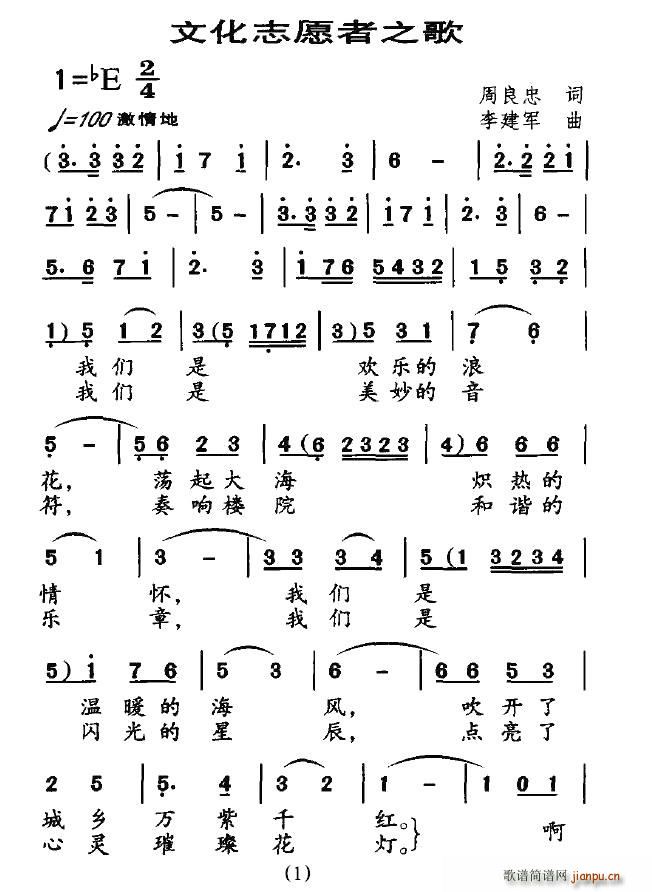 文化志愿者之歌
1=♭E 2/4
♩=100 激情地
周良忠 词
李建军 曲
(3. 3 3 2 | 1 7 1 | 2. 3 | 6 - | 2. 2 2 1 |
7 1 2 3 | 5 - | 5 - | 3. 3 3 2 | 1 7 1 | 2. 3 | 6 - |
5. 6 7 1 | 2. 3 | 1 7 6 5 4 3 2 | 1 5 3 2 |
1) 5 1 2 | 3 (5 1 7 1 2 | 3) 5 3 1 | 7 6 |
我们 是 欢乐的 浪
我们 是 美妙的 音
5 - | 5 6 2 3 | 4 (6 2 3 2 3 | 4) 6 6 6 |
花, 荡起大 海 炽热的
符, 奏响楼 院 和谐的
5 1 | 3 - | 3 3 3 4 | 5 (1 3 2 3 4 |
情 怀, 我们 是
乐 章, 我们 是
5) 1 7 6 | 5 3 | 6 - | 6 6 5 3 |
温暖的 海 风, 吹开了
闪光的 星 辰, 点亮了
2 5 | 5. 4 | 3 2 | 1 - | 1 0 1 |
城乡 万紫 千 红。
心灵 璀璨 花 灯。} 啊
(1)
歌谱简谱网
jianpu.cn